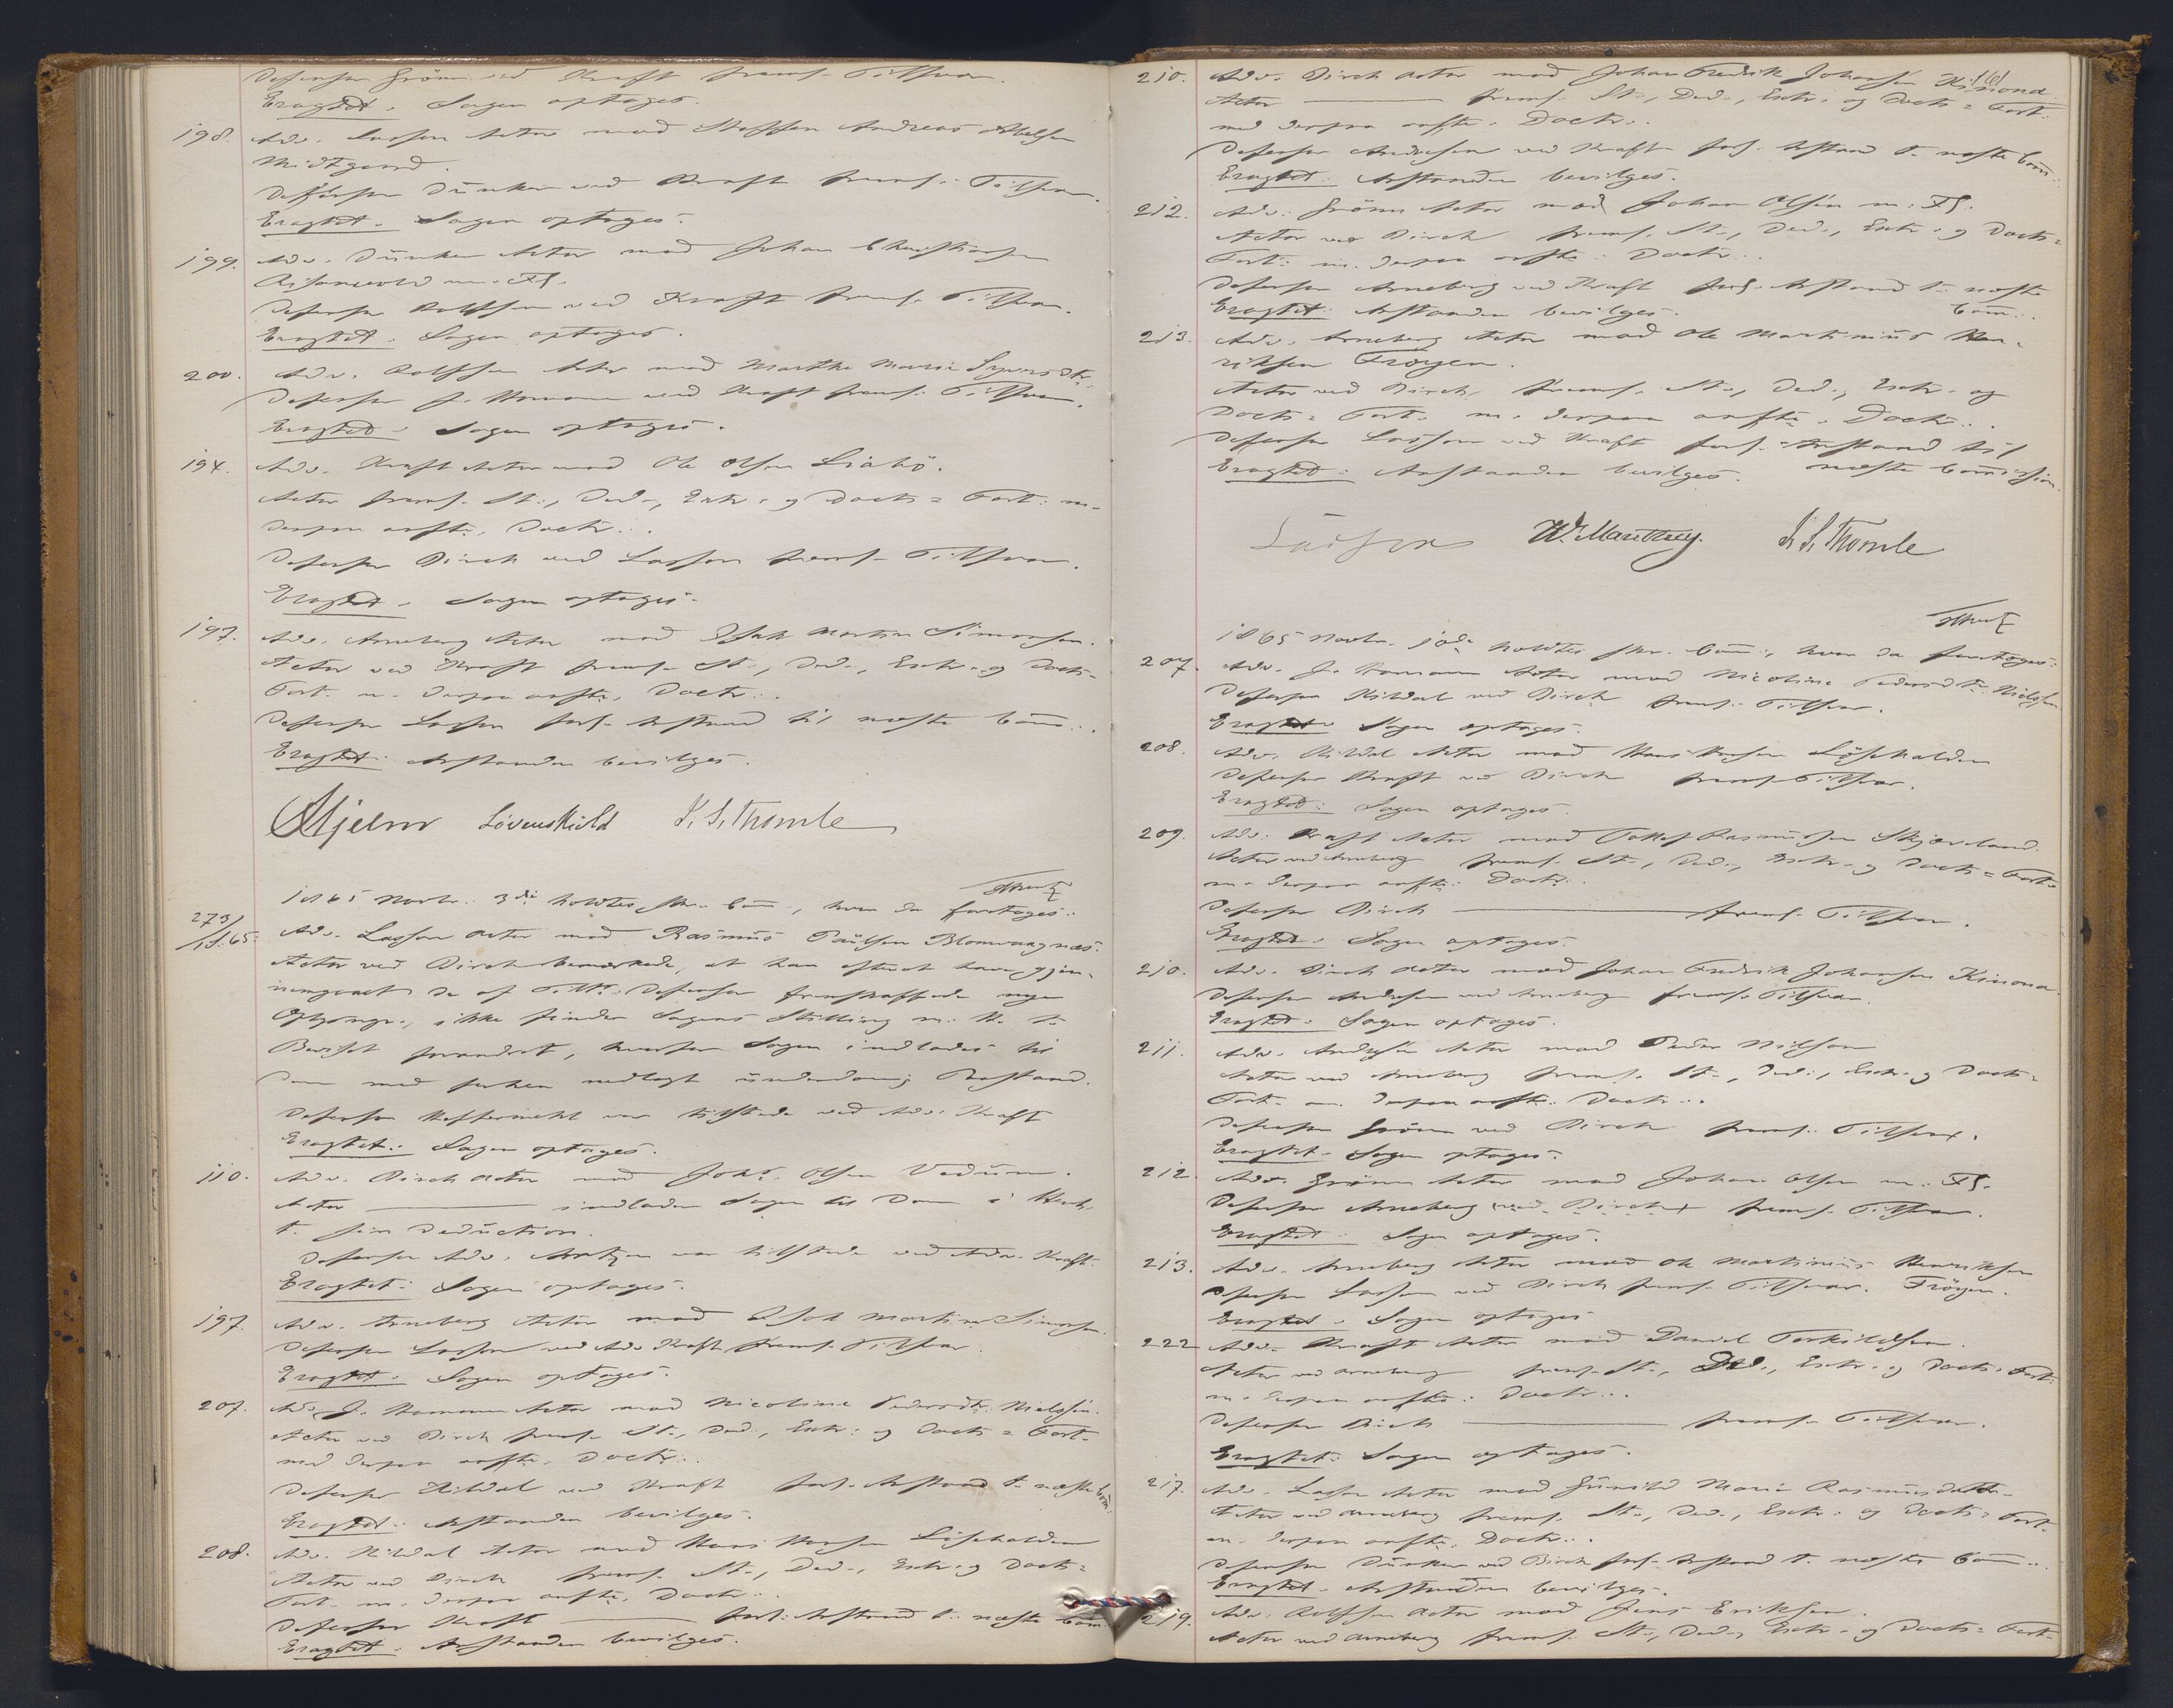 Defensor Grönn ved Kraft freml. Tilsvar.
Eragtet. Sagen optages.
198. Adv. Lasson Actor mod Steffen Andreas Abelsen
Midtgaard.
Defensor Dunker ved Kraft freml. Tilsvar.
Eragtet. Sagen optages.
199. Adv. Dunker Actor mod Johan Christiansen
m. Fl.
Defensor Rolfsen ved Kraft freml. Tilsvar.
Eragtet. Sagen optages.
200. Adv. Rolfsen Actor mod Marthe Marie Syversdtr.
Defensor J. Homann ved Kraft freml. Tilsvar.
Eragtet. Sagen optages.
194. Adv. Kraft Actor mod Ole Olsen Liabö.
Actor freml. St., Ded., Extr. og Doctr = Fort. m.
derpaa Doctr..
Defensor Birch ved Lasson freml. Tilsvar.
Eragtet. Sagen optages.
197. Adv. Arneberg Actor mod Isak Martin Simonsen.
Actor ved Kraft freml. St., Ded., Extr. og Doctr =
Fort. m. derpaa Doctr..
Defensor Lasson forl. Anstand til næste Comm..
Eragtet: Anstanden bevilges.
Hjelm Lövenskiold K. S. Thomle
1865 Novbr. 3die holdtes Comm., hvor da foretoges:
273/ 1865. Adv. Lasson Actor mod Rasmus Paulsen Blomvaagnæs.
Actor ved Birch bemærkede, at han efter at have gjen-
nemgaaet de af Defensor fremskaffede nye
ikke finder Sagens Stilling m. H. t.
Beviset forandret, hvorfor Sagen indlades til
Dom med forhen nedlagt underdanig Paastand.
Defensor var tilstede ved Adv. Kraft
Eragtet: Sagen optages.
110. Adv. Birch Actor mod Johs. Olsen Vedum.
Actor ——— indlader Sagen til Dom i Henh.
t. sin Deduction.
Defensor Adv. var tilstede ved Adv. Kraft.
Eragtet: Sagen optages.
197. Adv. Arneberg Actor mod Isak Martin Simonsen.
Defensor Lasson ved Adv. Kraft freml. Tilsvar.
Eragtet. Sagen optages.
207. Adv. J. Homann Actor mod Nicoline Pedersdtr. Nielsen.
Actor ved Birch freml. St., Ded., Extr. og Doctr = Fort.
med derpaa Doctr..
Defensor Hildal ved Kraft forl. Anstand t. næste Comm.
Eragtet: Anstanden bevilges.
208. Adv. Hildal Actor mod Hans Hansen
Actor ved Birch freml. St., Ded., Extr. og Doctr =
Fort. m. derpaa Doctr..
Defensor Kraft ——— forl. Anstand t. næste Comm.
Eragtet. Anstanden bevilges.
210. Adv. Birch Actor mod Johan Fredrik Johansen Kimona.
Actor ——— freml. St., Ded., Extr. og Doctr = Fort.
med derpaa Doctr..
Defensor Andresen ved Kraft forl. Anstand t. næste Comm..
Eragtet: Anstanden bevilges.
212. Adv. Grönn Actor mod Johan Olsen m. Fl.
Actor ved Birch freml. St., Ded., Extr. og Doctr =
Fort. m. derpaa Doctr..
Defensor Arneberg ved Kraft forl. Anstand t. næste
Eragtet: Anstanden bevilges. Comm..
213. Adv. Arneberg Actor mod Ole Martinius Hen-
riksen Fröyen.
Actor ved Birch freml. St., Ded., Extr. og
Doctr = Fort. m. derpaa Doctr..
Defensor Lasson ved Kraft forl. Anstand til
Eragtet: Anstanden bevilges. næste Commission.
W. Manthey. K. S. Thomle
1865 Novbr. 10de holdtes Comm., hvor da foretoges:
207. Adv. J. Homann Actor mod Nicoline Pedersdtr. Nielsen
Defensor Hildal ved Birch freml. Tilsvar.
Eragtet: Sagen optages.
208. Adv. Hildal Actor mod Hans Hansen
Defensor Kraft ved Birch freml. Tilsvar.
Eragtet: Sagen optages.
209. Adv. Kraft Actor mod Tollef Rasmussen Skjæveland.
Actor ved Arneberg freml. St., Ded., Extr. og Doctr = Fort.
m. derpaa Doctr..
Defensor Birch ——— freml. Tilsvar.
Eragtet. Sagen optages.
210. Adv. Birch Actor mod Johan Fredrik Johansen Kimona.
Defensor Andresen ved Arneberg freml. Tilsvar.
Eragtet. Sagen optages.
211. Adv. Andresen Actor mod Peder Nilsson
Actor ved Arneberg freml. St., Ded., Extr. og Doctr =
Fort. m. derpaa Doctr..
Defensor Grönn ved Birch freml. Tilsvar.
Eragtet. Sagen optages.
212. Adv. Grönn Actor mod Johan Olsen m. Fl.
Defensor Arneberg ved Birch freml. Tilsvar.
Eragtet: Sagen optages.
213. Adv. Arneberg Actor mod Ole Martinius Henriksen
Defensor Lasson ved Birch freml. Tilsvar. Fröyen.
Eragtet. Sagen optages
222 Adv. Kraft Actor mod Daniel Torkildsen.
Actor ved Arneberg freml. St., Ded., Extr. og Doctr = Fort.
m. derpaa Doctr..
Defensor Birch ——— freml. Tilsvar.
Eragtet: Sagen optages.
217. Adv. Lasson Actor mod Gunild Marie Rasmusdatter.
Actor ved Arneberg freml. St., Ded., Extr. og Doctr = Fort.
m. derpaa Doctr..
Defensor Dunker ved Birch forl. Anstand t. næste Comm..
Eragtet. Anstanden bevilges.
219. Adv. Rolfsen Actor mod Jens Eriksen.
Actor ved Arneberg freml. St., Ded., Extr. og Doctr = Fort.